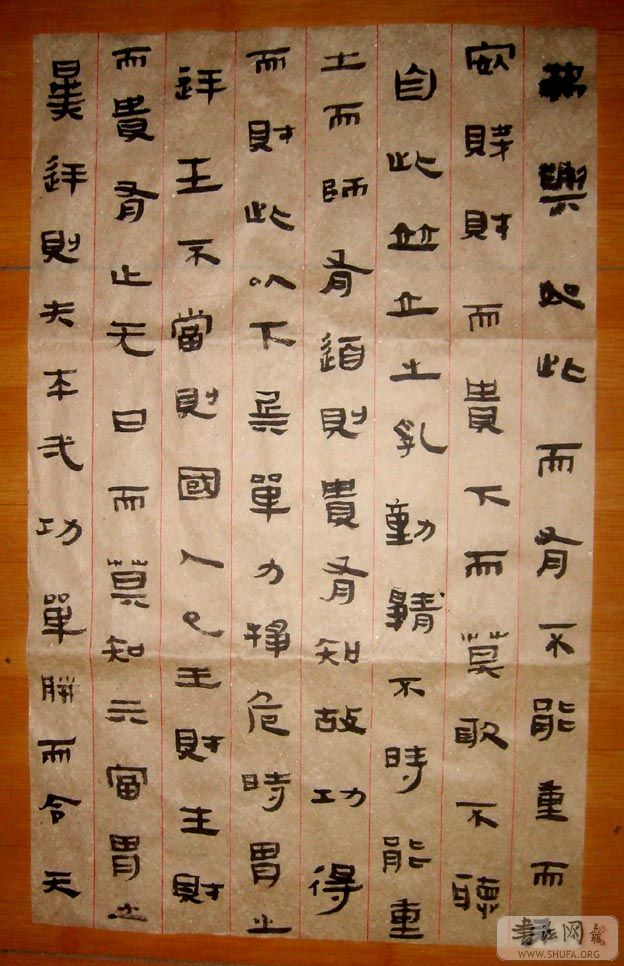 與如此而有不能重而
賤財而貴下而莫敢不聽
自此並止土乳動靜不時能重
土而師有道則貴有知故功得
而財此以下兵單力掙危時胃之
王不當則國人也王財主財
而貴有止天曰而莫知六富胃之
則夫本弌功單勝而令天
書法网
WWW.SHUFA.ORG